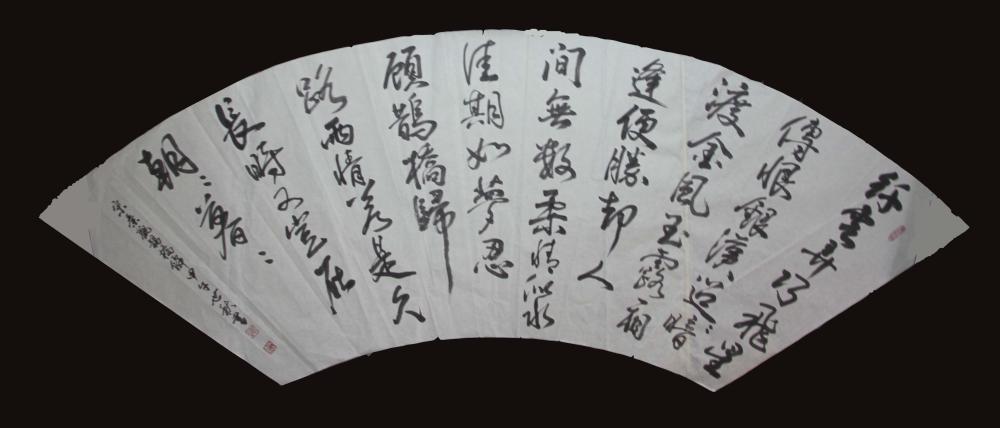 纤雲弄巧飛星
傳恨銀漢迢々暗
渡金風玉露一相
逢便勝却人
間無數柔情似水
佳期如夢忍
顧鵲橋歸
路兩情若是久
長時又豈在
朝々暮々
宋秦觀鵲橋仙甲午書